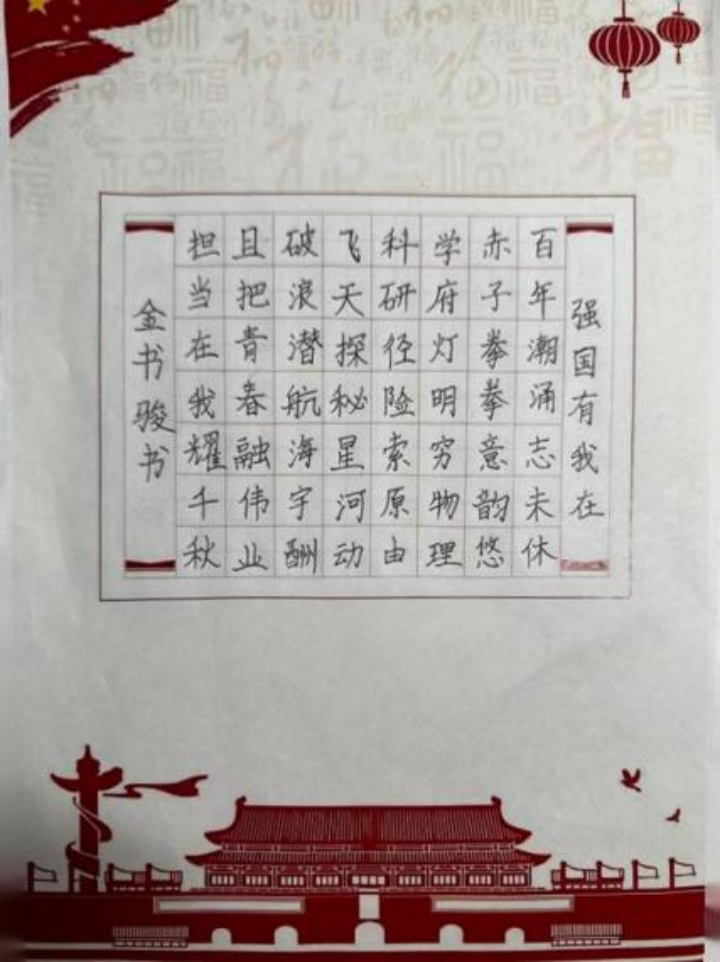 强国有我在
百年潮涌志未休
赤子拳拳意韵悠
学府灯明穷物理
科研径险索原由
飞天探秘星河动
破浪潜航海宇酬
且把青春融伟业
担当在我耀千秋
金书骏书